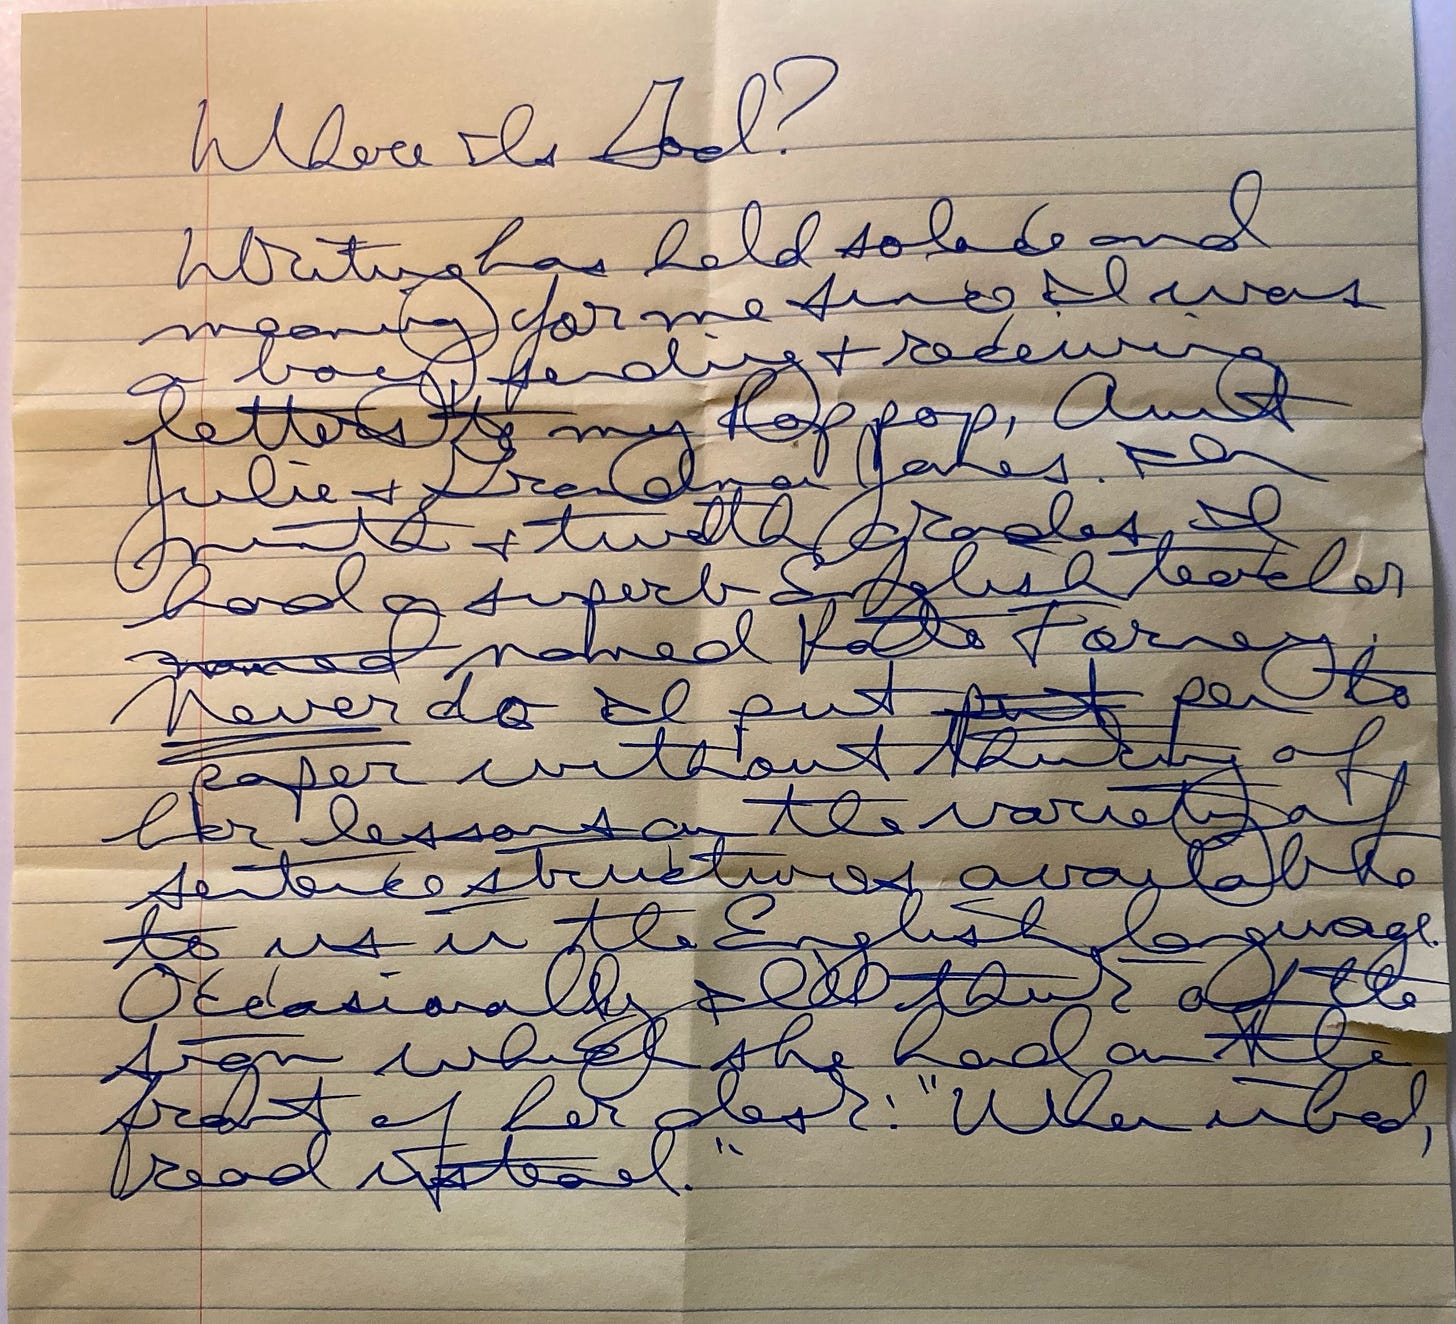 Where Is God?
Writing has held solace and
meaning for me since I was
a boy, sending + receiving
letters to my Pop pop, Aunt
Julie + Grandma Janes. In
ninth + twelfth grades, I
had a superb English teacher
named named Forney.
Never do I put put pen to
paper without thinking of
her lessons on the variety of
sentence structures available
to us in the English language.
Occasionally I'll think of the
sign which she had on the
front of her desk: "When in bed,
read instead."